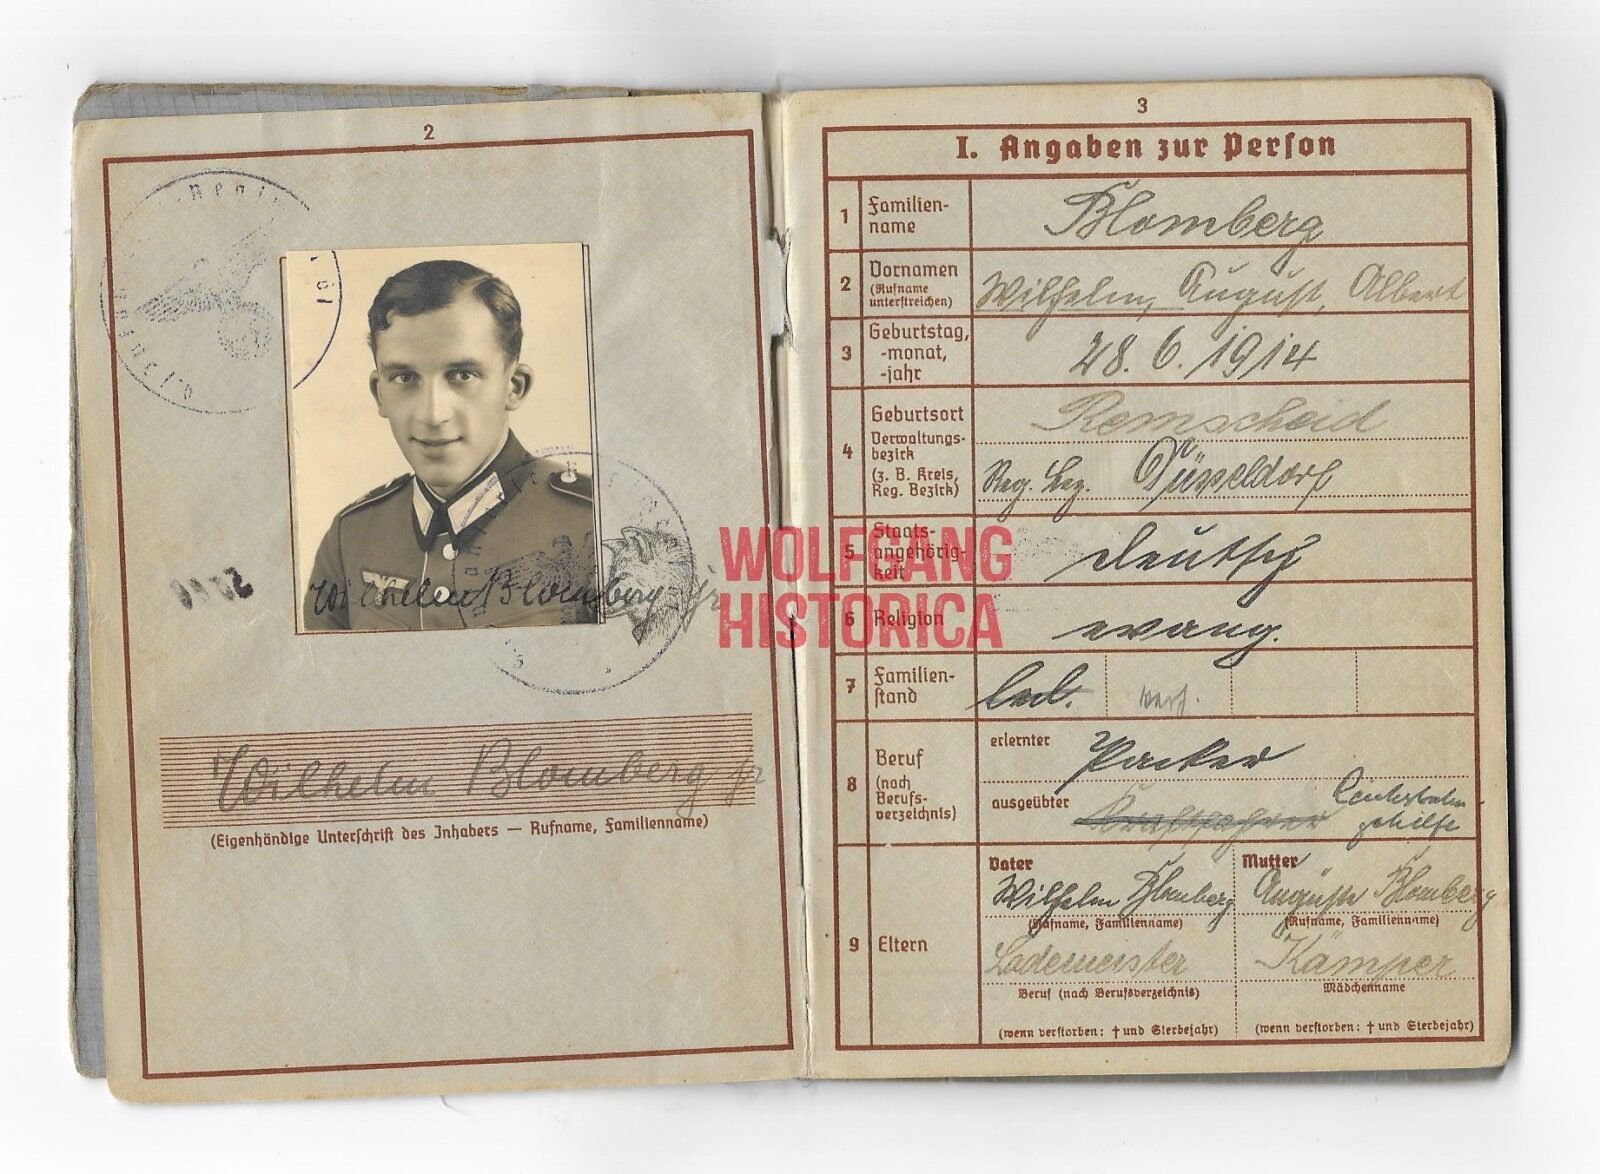 2
Wilhelm Blomberg jr
Wilhelm Blomberg jr
(Eigenhändige Unterschrift des Inhabers — Rufname, Familienname)
WOLFGANG
HISTORICA
3
I. Angaben zur Person
1 Familien-
name
Blomberg
2 Vornamen
(Rufname
unterstreichen)
Wilhelm, August, Albert
3 Geburtstag,
-monat,
-jahr
28. 6. 1914
4 Geburtsort
Remscheid
Verwaltungs-
bezirk
(z. B. Kreis,
Reg. Bezirk)
Reg. Bez. Düsseldorf
5 Staats-
angehörig-
keit
deutsch
6 Religion
evang.
7 Familien-
stand
led. verh.
8 Beruf
(nach
Berufs-
verzeichnis)
erlernter Packer
ausgeübter Kraftfahrer
gehilfe
9 Eltern
Vater
Wilhelm Blomberg
(Rufname, Familienname)
Lademeister
Beruf (nach Berufsverzeichnis)
(wenn verstorben: † und Sterbejahr)
Mutter
Auguste Blomberg
(Rufname, Familienname)
Kämper
Mädchenname
(wenn verstorben: † und Sterbejahr)